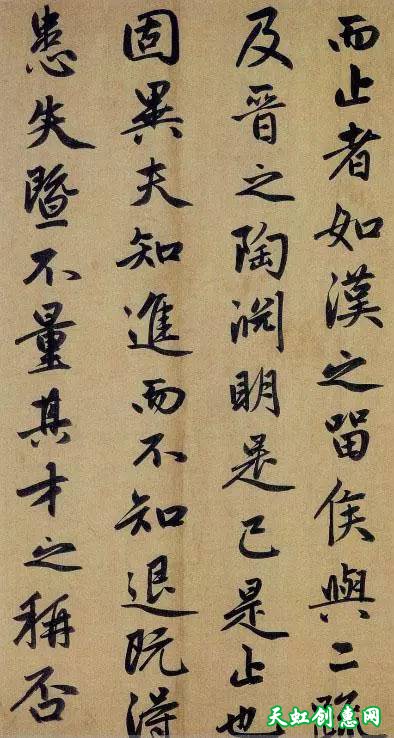 而止者如漢之留侯與二疏
及晉之陶淵明是已是止也
固異夫知進而不知退既得
患失暨不量其才之稱否
天虹创惠网